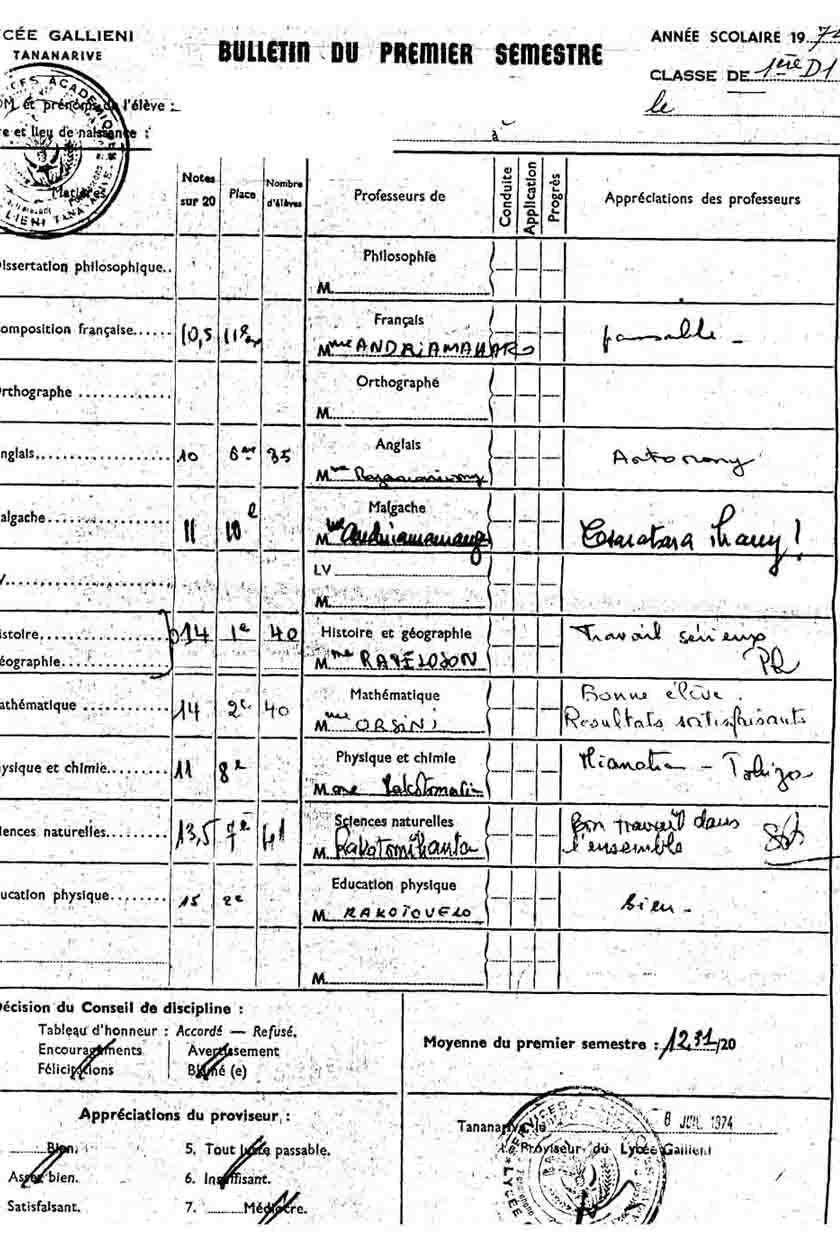 CÉE GALLIENI
TANANARIVE
BULLETIN DU PREMIER SEMESTRE
ANNÉE SCOLAIRE 19 74
CLASSE DE 1ère D1
le
OM et prénoms de l'élève :
e et lieu de naissance :
à
Matières
Notes sur 20
Place
Nombre d'élèves
Professeurs de
Conduite
Application
Progrès
Appréciations des professeurs
issertation philosophique..
Philosophie
M.
omposition française......
10,5
Français
Mme ANDRIAMAHARO
passable -
rthographe ............
Orthographe
M.
nglais..................
10
6
35
Anglais
Mme
algache
11
10e
Malgache
Mme
Tsaratsara ihany !
V.
LV
M.
istoire,
éographie.
14
1e
40
Histoire et géographie
Mme RAVELOSON
Travail sérieux
PR
athématique
14
2e
40
Mathématique
Mme ORSINI
Bonne élève.
Résultats satisfaisants
ysique et chimie.........
11
8e
Physique et chimie
M
Mianatra -
iences naturelles.........
13,5
7e
41
Sciences naturelles
M. Rakotomihanta
Bon travail dans
l'ensemble
ucation physique........
15
2e
Education physique
M. RAKOTOVELO
bien -
M.
écision du Conseil de discipline :
Tableau d'honneur : Accordé — Refusé.
Encouragements
Avertissement
Félicitations
Blâmé (e)
Moyenne du premier semestre : 12,31/20
Appréciations du proviseur :
Bien.
5. Tout juste passable.
Assez bien.
6. Insuffisant.
Satisfaisant.
7. Médiocre.
Tananarive, le
8 JUIL 1974
Proviseur du Lycée Gallieni